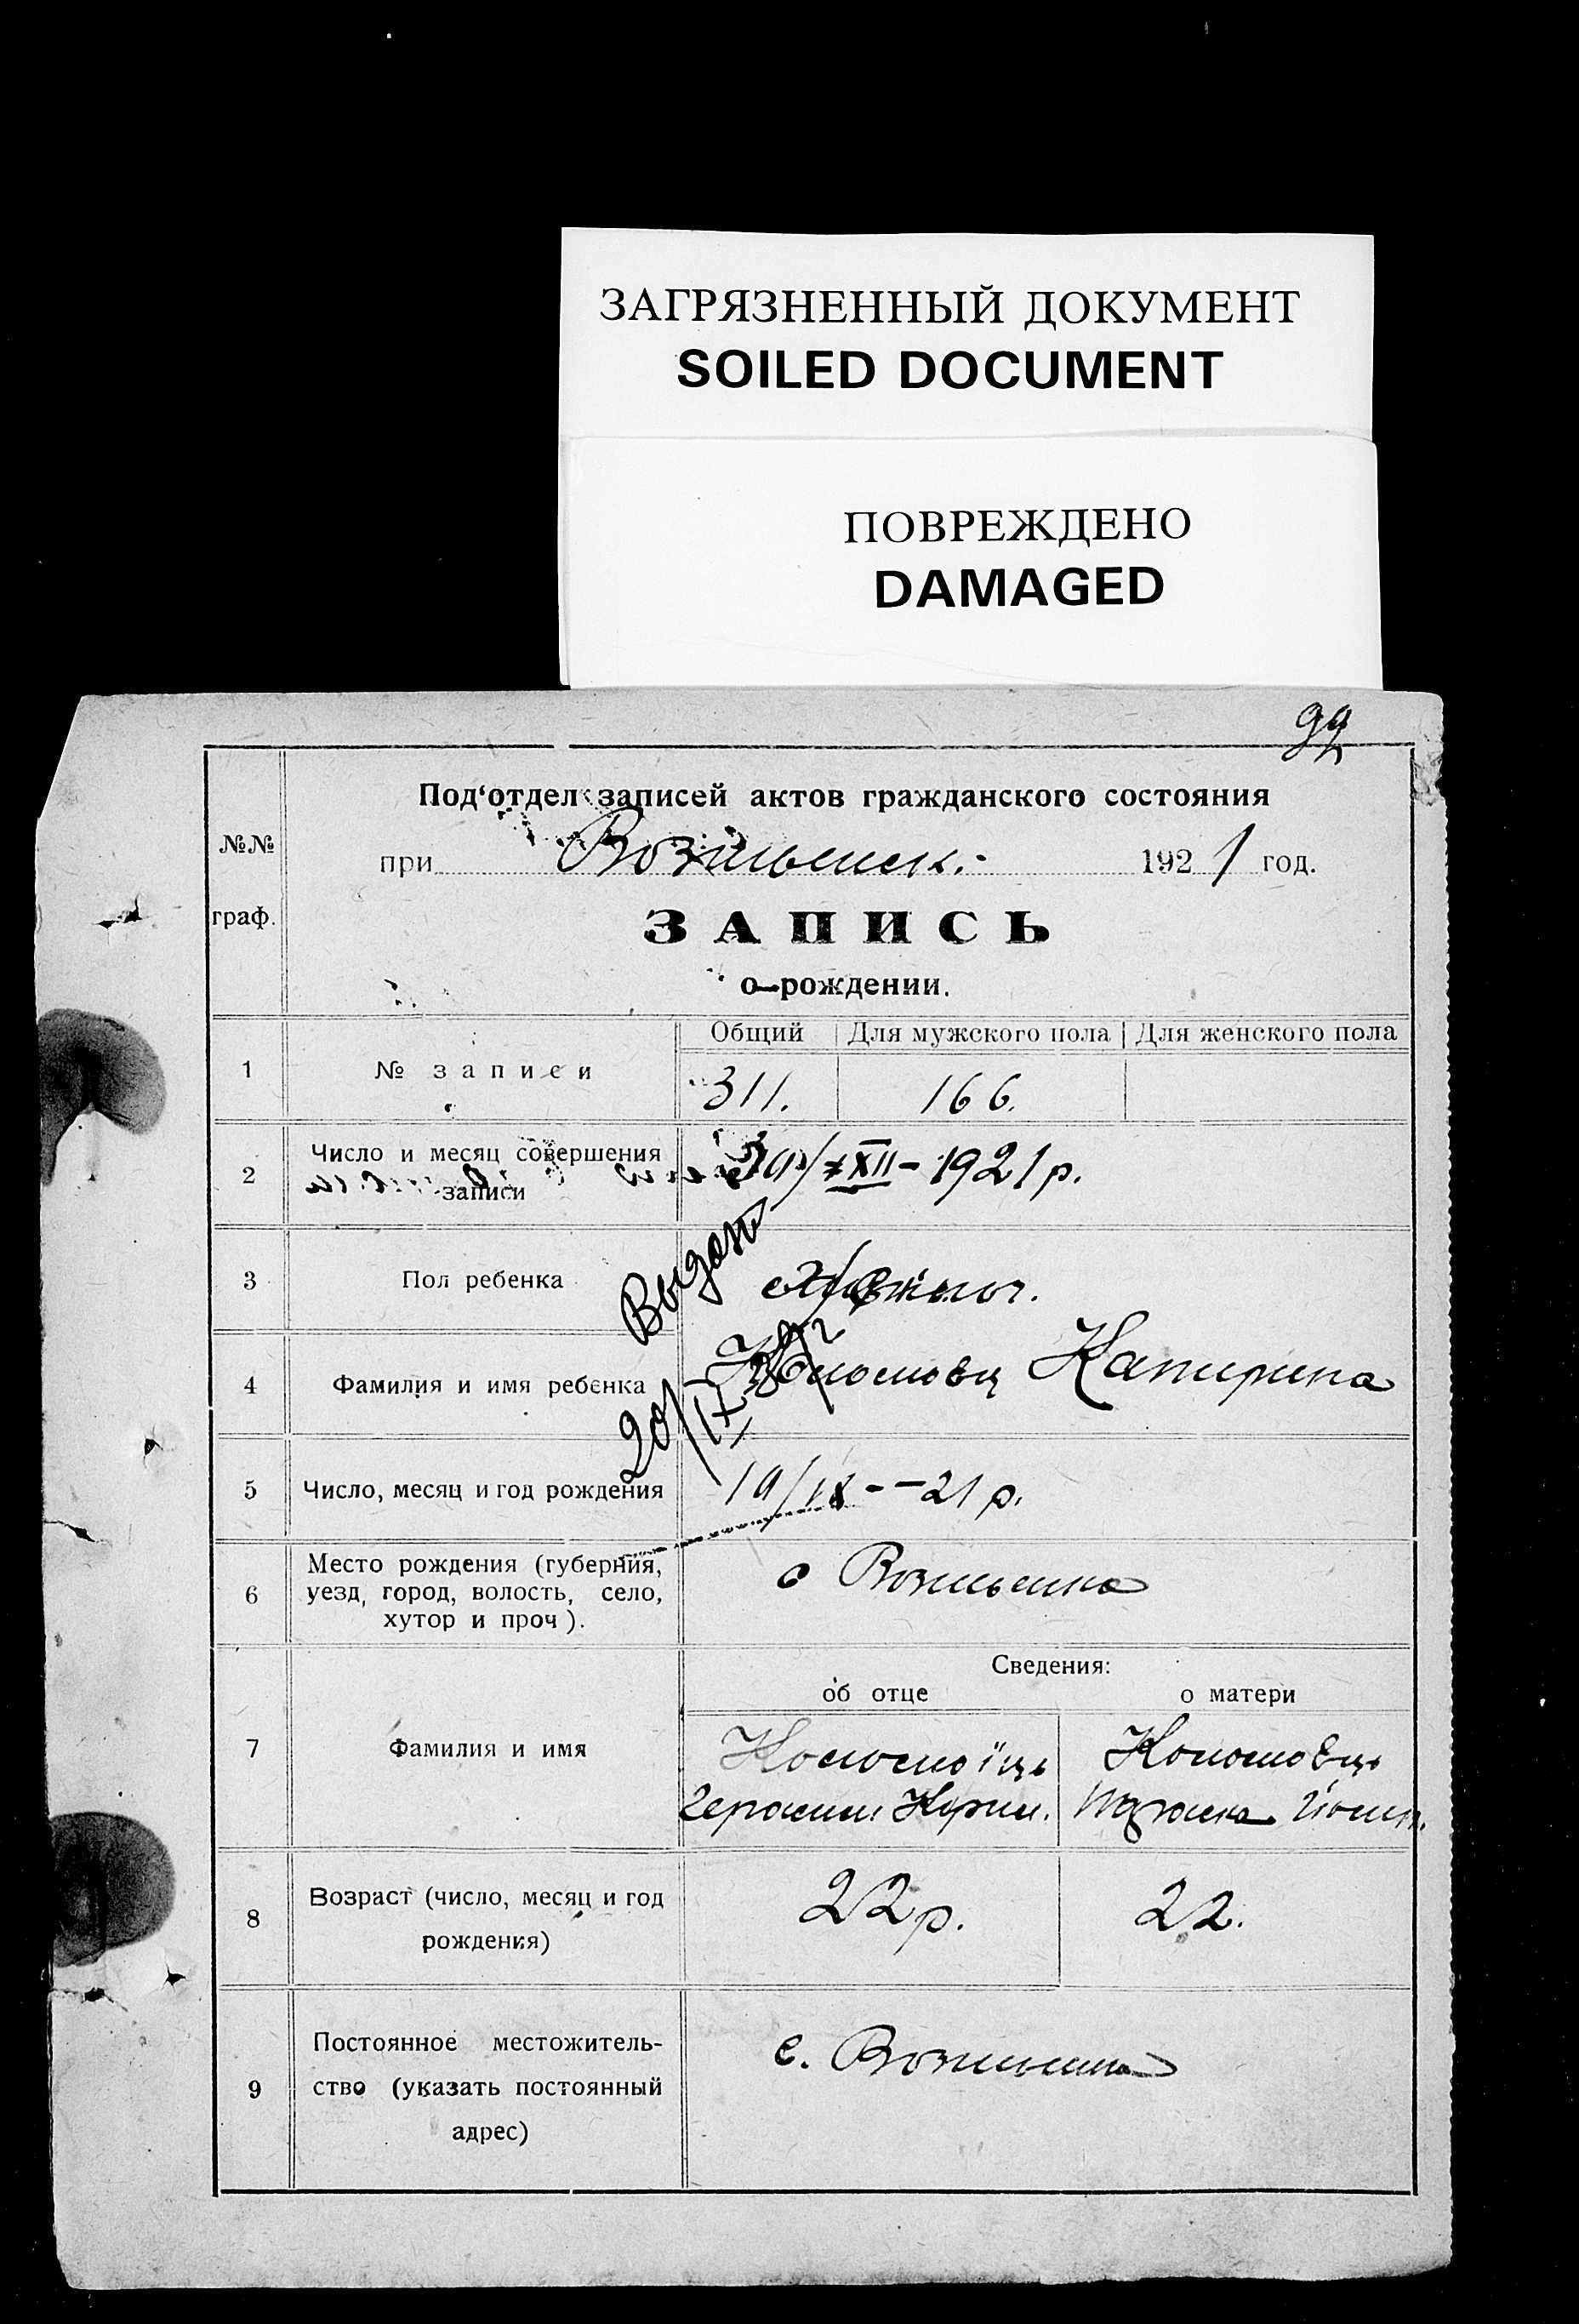 ЗАГРЯЗНЕННЫЙ ДОКУМЕНТ
SOILED DOCUMENT
ПОВРЕЖДЕНО
DAMAGED
99
Под‘отдел записей актов гражданского состояния
№№
граф.
при 1921 год.
ЗАПИСЬ
о рождении.
Общий Для мужского пола Для женского пола
1 № записи 311. 166.
2 Число и месяц совершения
записи XII - 1921 р.
Выдан
3 Пол ребенка
4 Фамилия и имя ребенка Катерина
20/IX
5 Число, месяц и год рождения 19/IX - 21 р.
6 Место рождения (губерния,
уезд, город, волость, село,
хутор и проч).
Сведения:
об отце о матери
7 Фамилия и имя
Герасим
8 Возраст (число, месяц и год
рождения) 22 р. 22.
9 Постоянное местожитель-
ство (указать постоянный
адрес) с.